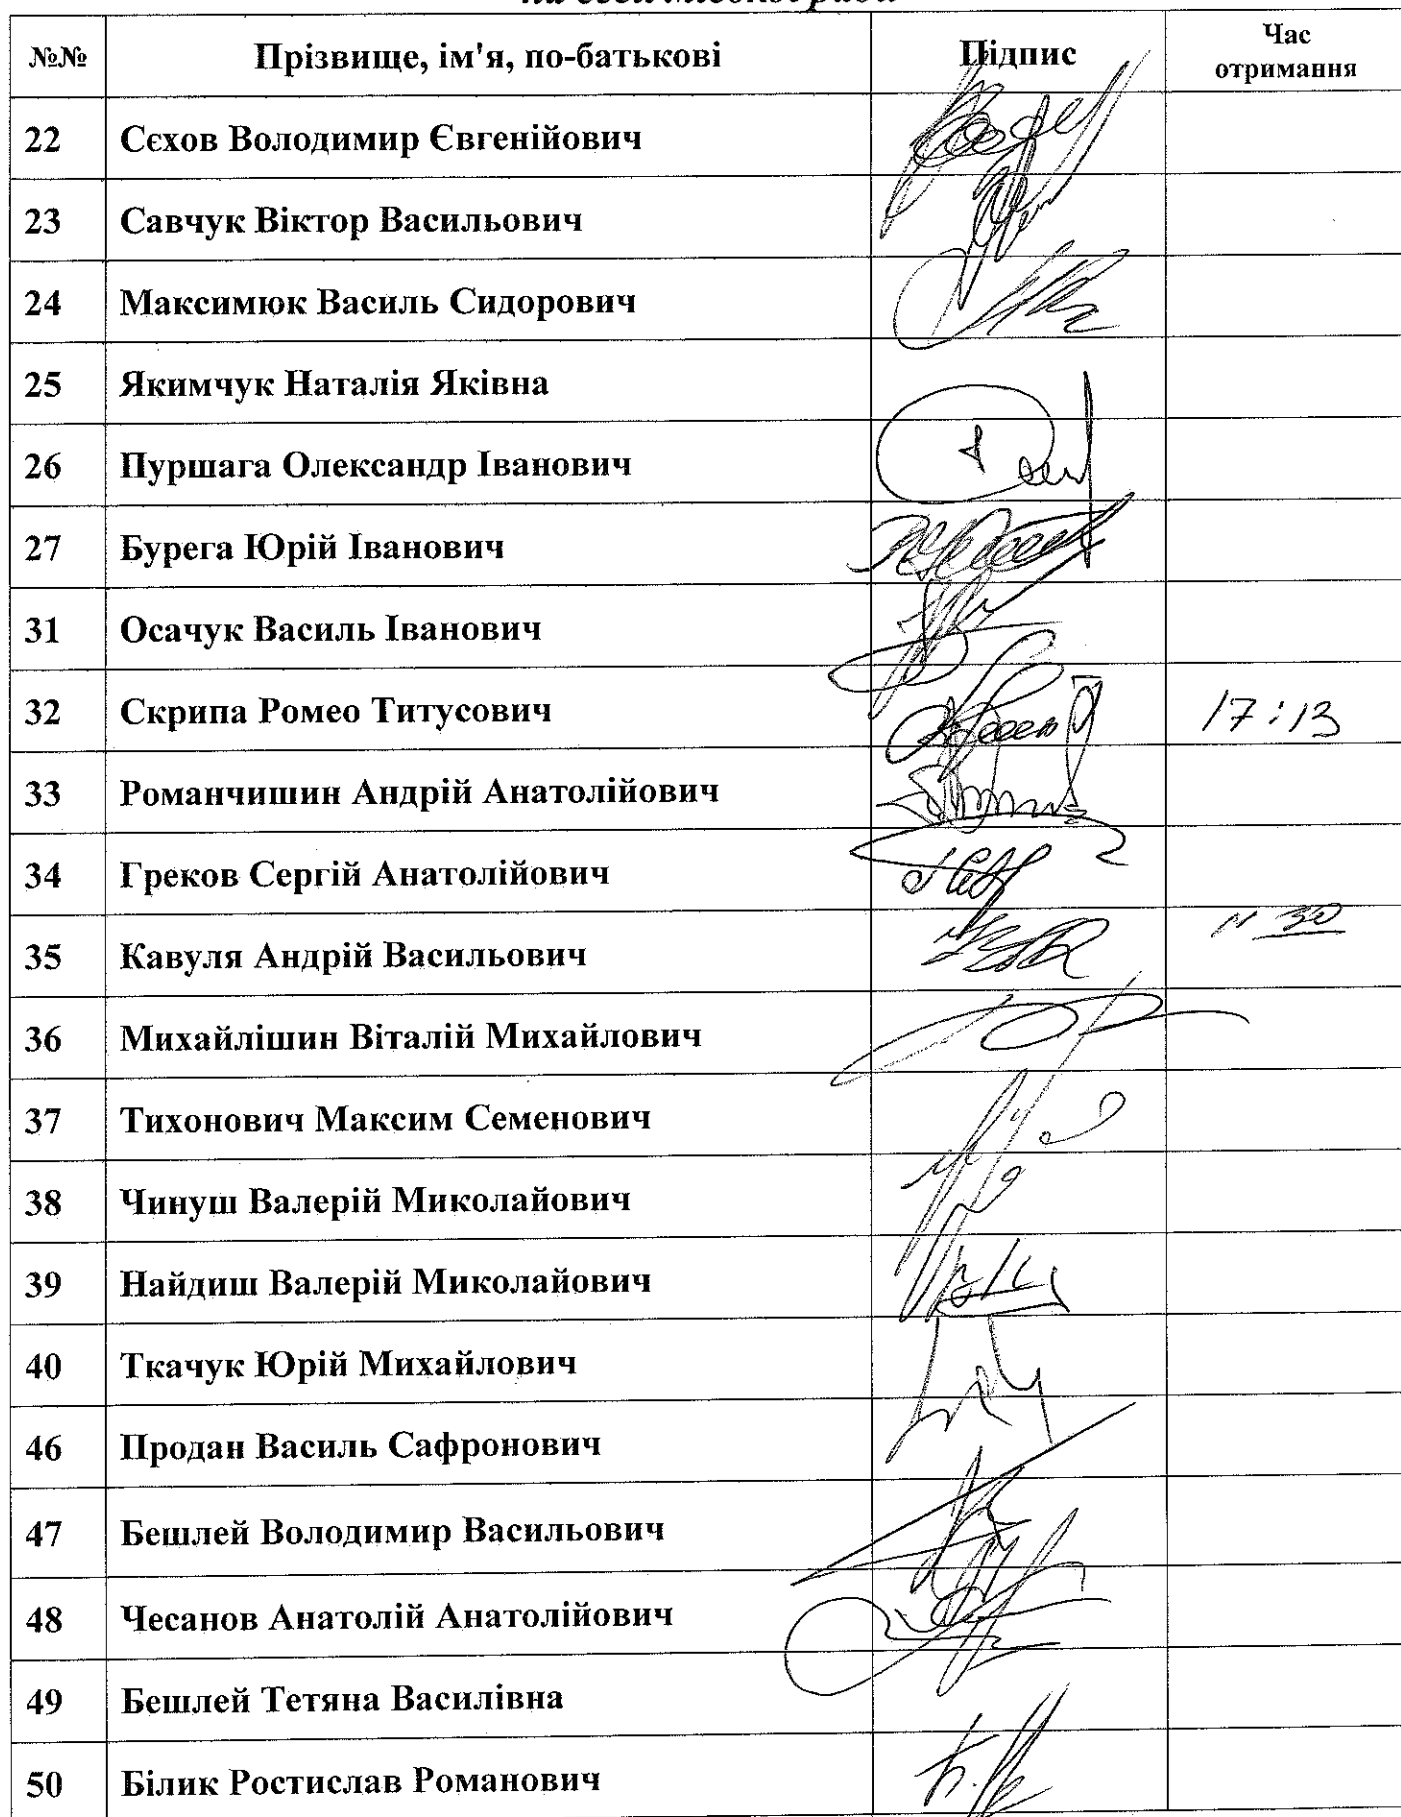 №№ Прізвище, ім'я, по-батькові Підпис Час отримання
22 Сєхов Володимир Євгенійович
23 Савчук Віктор Васильович
24 Максимюк Василь Сидорович
25 Якимчук Наталія Яківна
26 Пуршага Олександр Іванович
27 Бурега Юрій Іванович
31 Осачук Василь Іванович
32 Скрипа Ромео Титусович 17:13
33 Романчишин Андрій Анатолійович
34 Греков Сергій Анатолійович
35 Кавуля Андрій Васильович
36 Михайлішин Віталій Михайлович
37 Тихонович Максим Семенович
38 Чинуш Валерій Миколайович
39 Найдиш Валерій Миколайович
40 Ткачук Юрій Михайлович
46 Продан Василь Сафронович
47 Бешлей Володимир Васильович
48 Чесанов Анатолій Анатолійович
49 Бешлей Тетяна Василівна
50 Білик Ростислав Романович